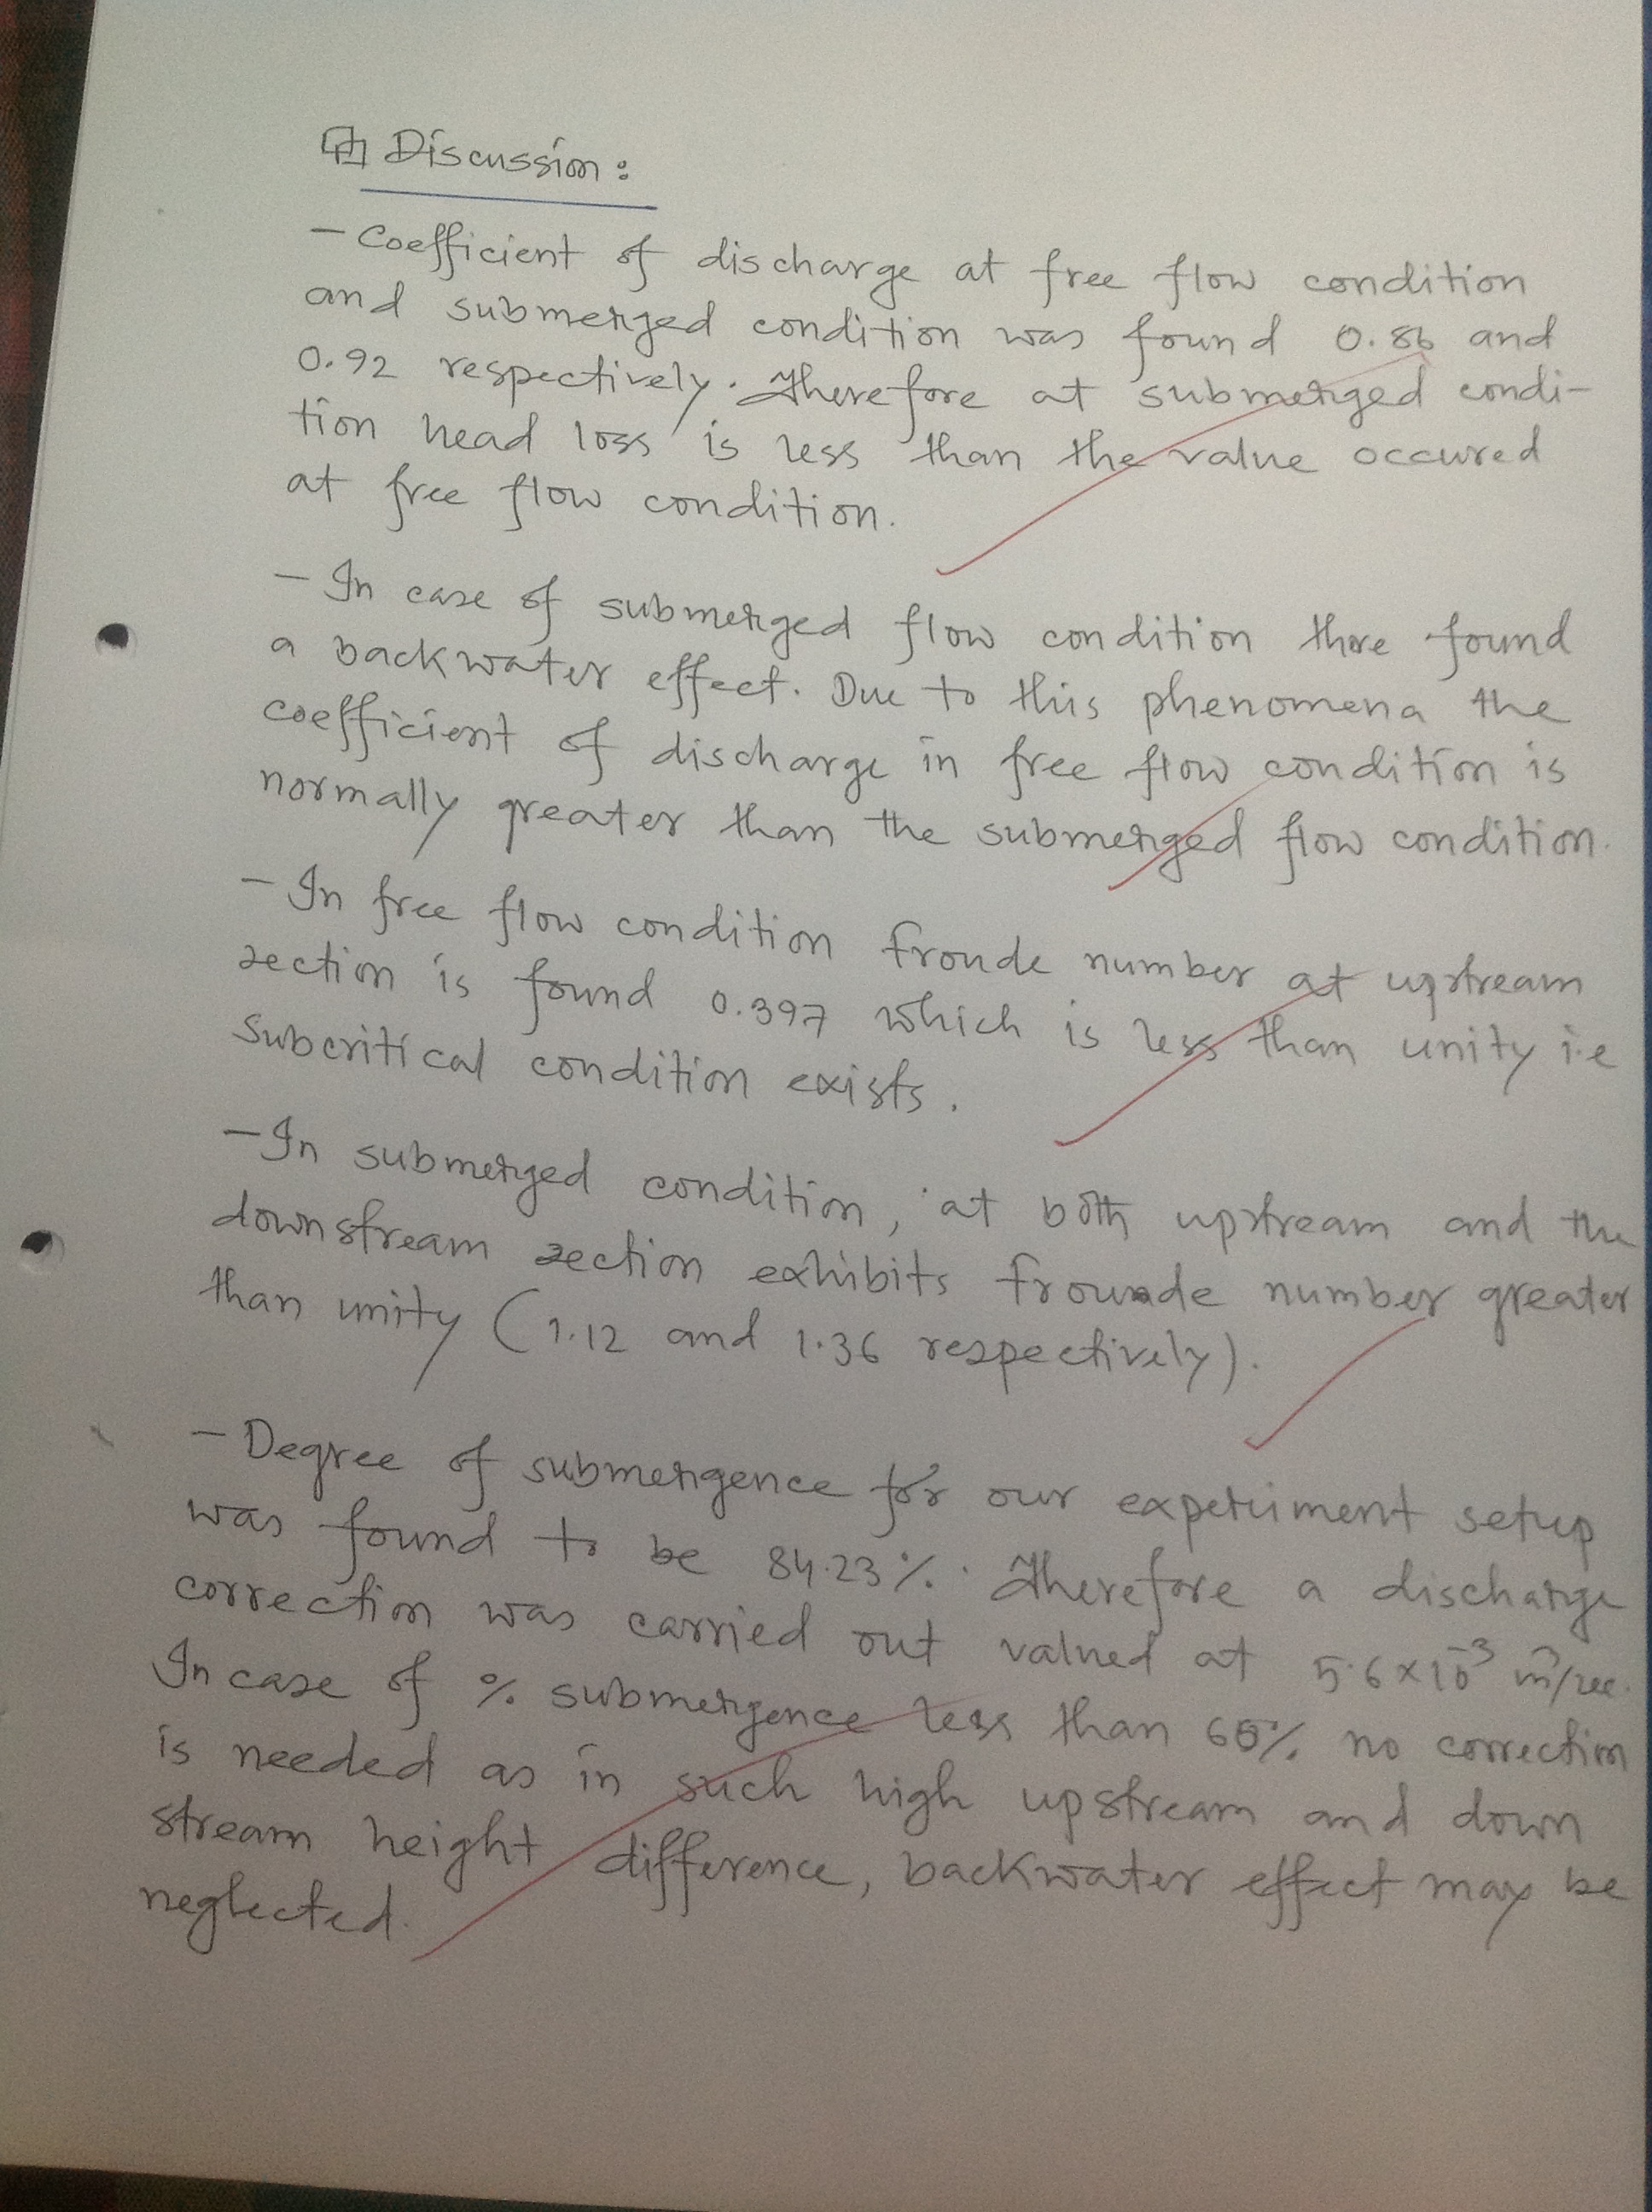 Discussion:
- Coefficient of discharge at free flow condition
and submerged condition was found 0.86 and
0.92 respectively. Therefore at submerged condi-
tion head loss is less than the value occured
at free flow condition.
- In case of submerged flow condition there found
a backwater effect. Due to this phenomena the
coefficient of discharge in free flow condition is
normally greater than the submerged flow condition.
- In free flow condition froude number at upstream
section is found 0.397 which is less than unity i.e
subcritical condition exists.
- In submerged condition, at both upstream and the
downstream section exhibits frounde number greater
than unity (1.12 and 1.36 respectively).
- Degree of submergence for our experiment setup
was found to be 84.23%. Therefore a discharge
correction was carried out valued at 5.6×10⁻³ m³/sec.
In case of % submergence less than 60% no correction
is needed as in such high upstream and down
stream height difference, backwater effect may be
neglected.